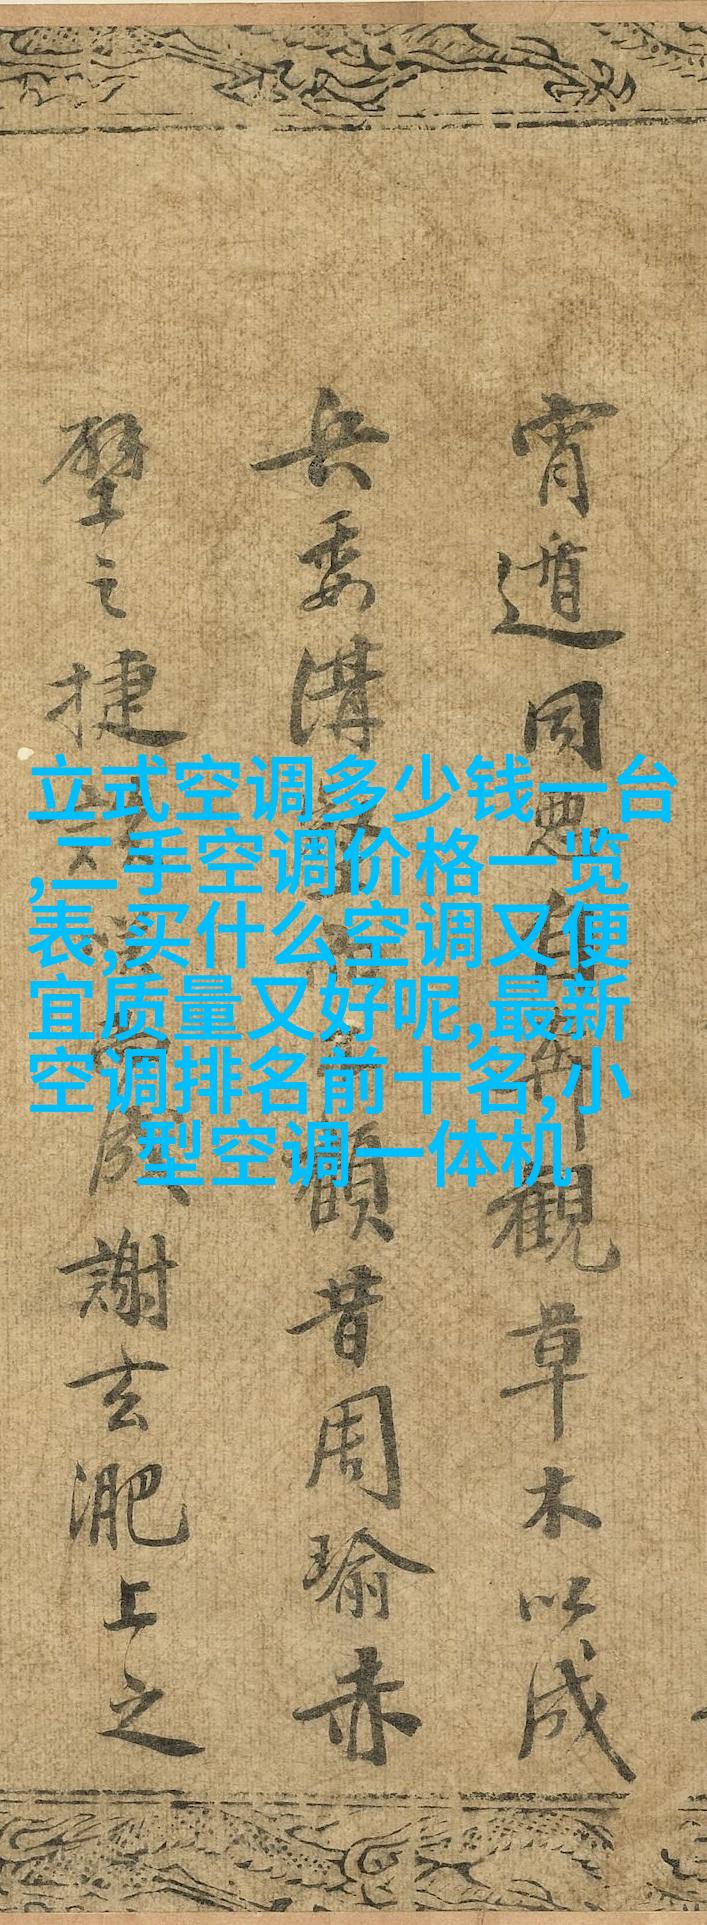 立式空调多少钱一台
,二手空调价格一览
表,买什么空调又便
宜质量又好呢,最新
空调排名前十名,小
型空调一体机
宵遁同惡自觀草木以成
兵委溝壑而不顧昔周瑜赤
壁之捷談笑而成謝玄淝上之